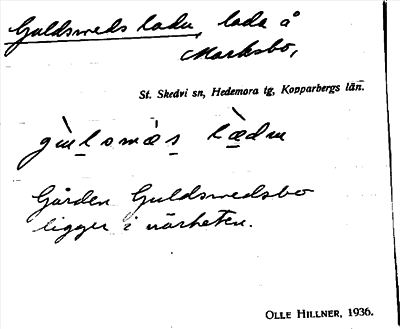 Guldsmeds ladu, lada å
Marksbo,
St. Skedvi sn, Hedemora tg, Kopparbergs län.
Gården Guldsmedsbo
ligger i närheten.
OLLE HILLNER, 1936.